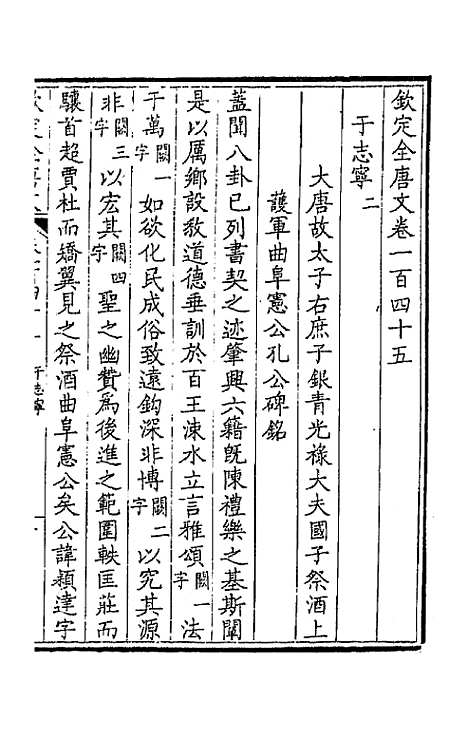 欽定全唐文卷一百四十五
于志寧二
大唐故太子右庶子銀青光祿大夫國子祭酒上
護軍曲阜憲公孔公碑銘
蓋聞八卦已列書契之迹肇興六籍旣陳禮樂之基斯闡
是以厲鄉設敎道德垂訓於百王涑水立言雅頌闕一字法
于萬闕一字如欲化民成俗致遠鈎深非博闕二字以究其源
非闕三字以宏其闕四字聖之幽贊爲後進之範圍軼匡莊而
驤首超賈杜而矯翼見之祭酒曲阜憲公矣公諱穎達字
于志寧